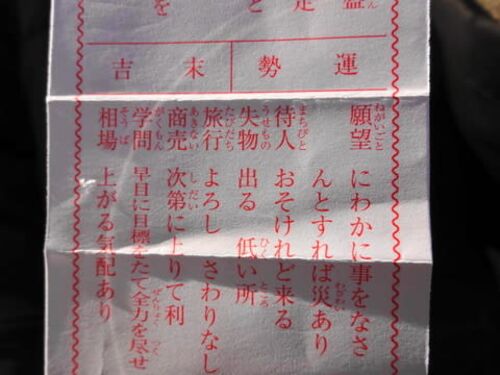 を
と
定
盗ん
運勢
末吉
願望 にわかに事をなさ
んとすれば災あり
待人 おそけれど来る
失物 出る 低い所
旅行 よろし さわりなし
商売 次第に上りて利
学問 早目に目標をたて全力を尽せ
相場 上がる気配あり